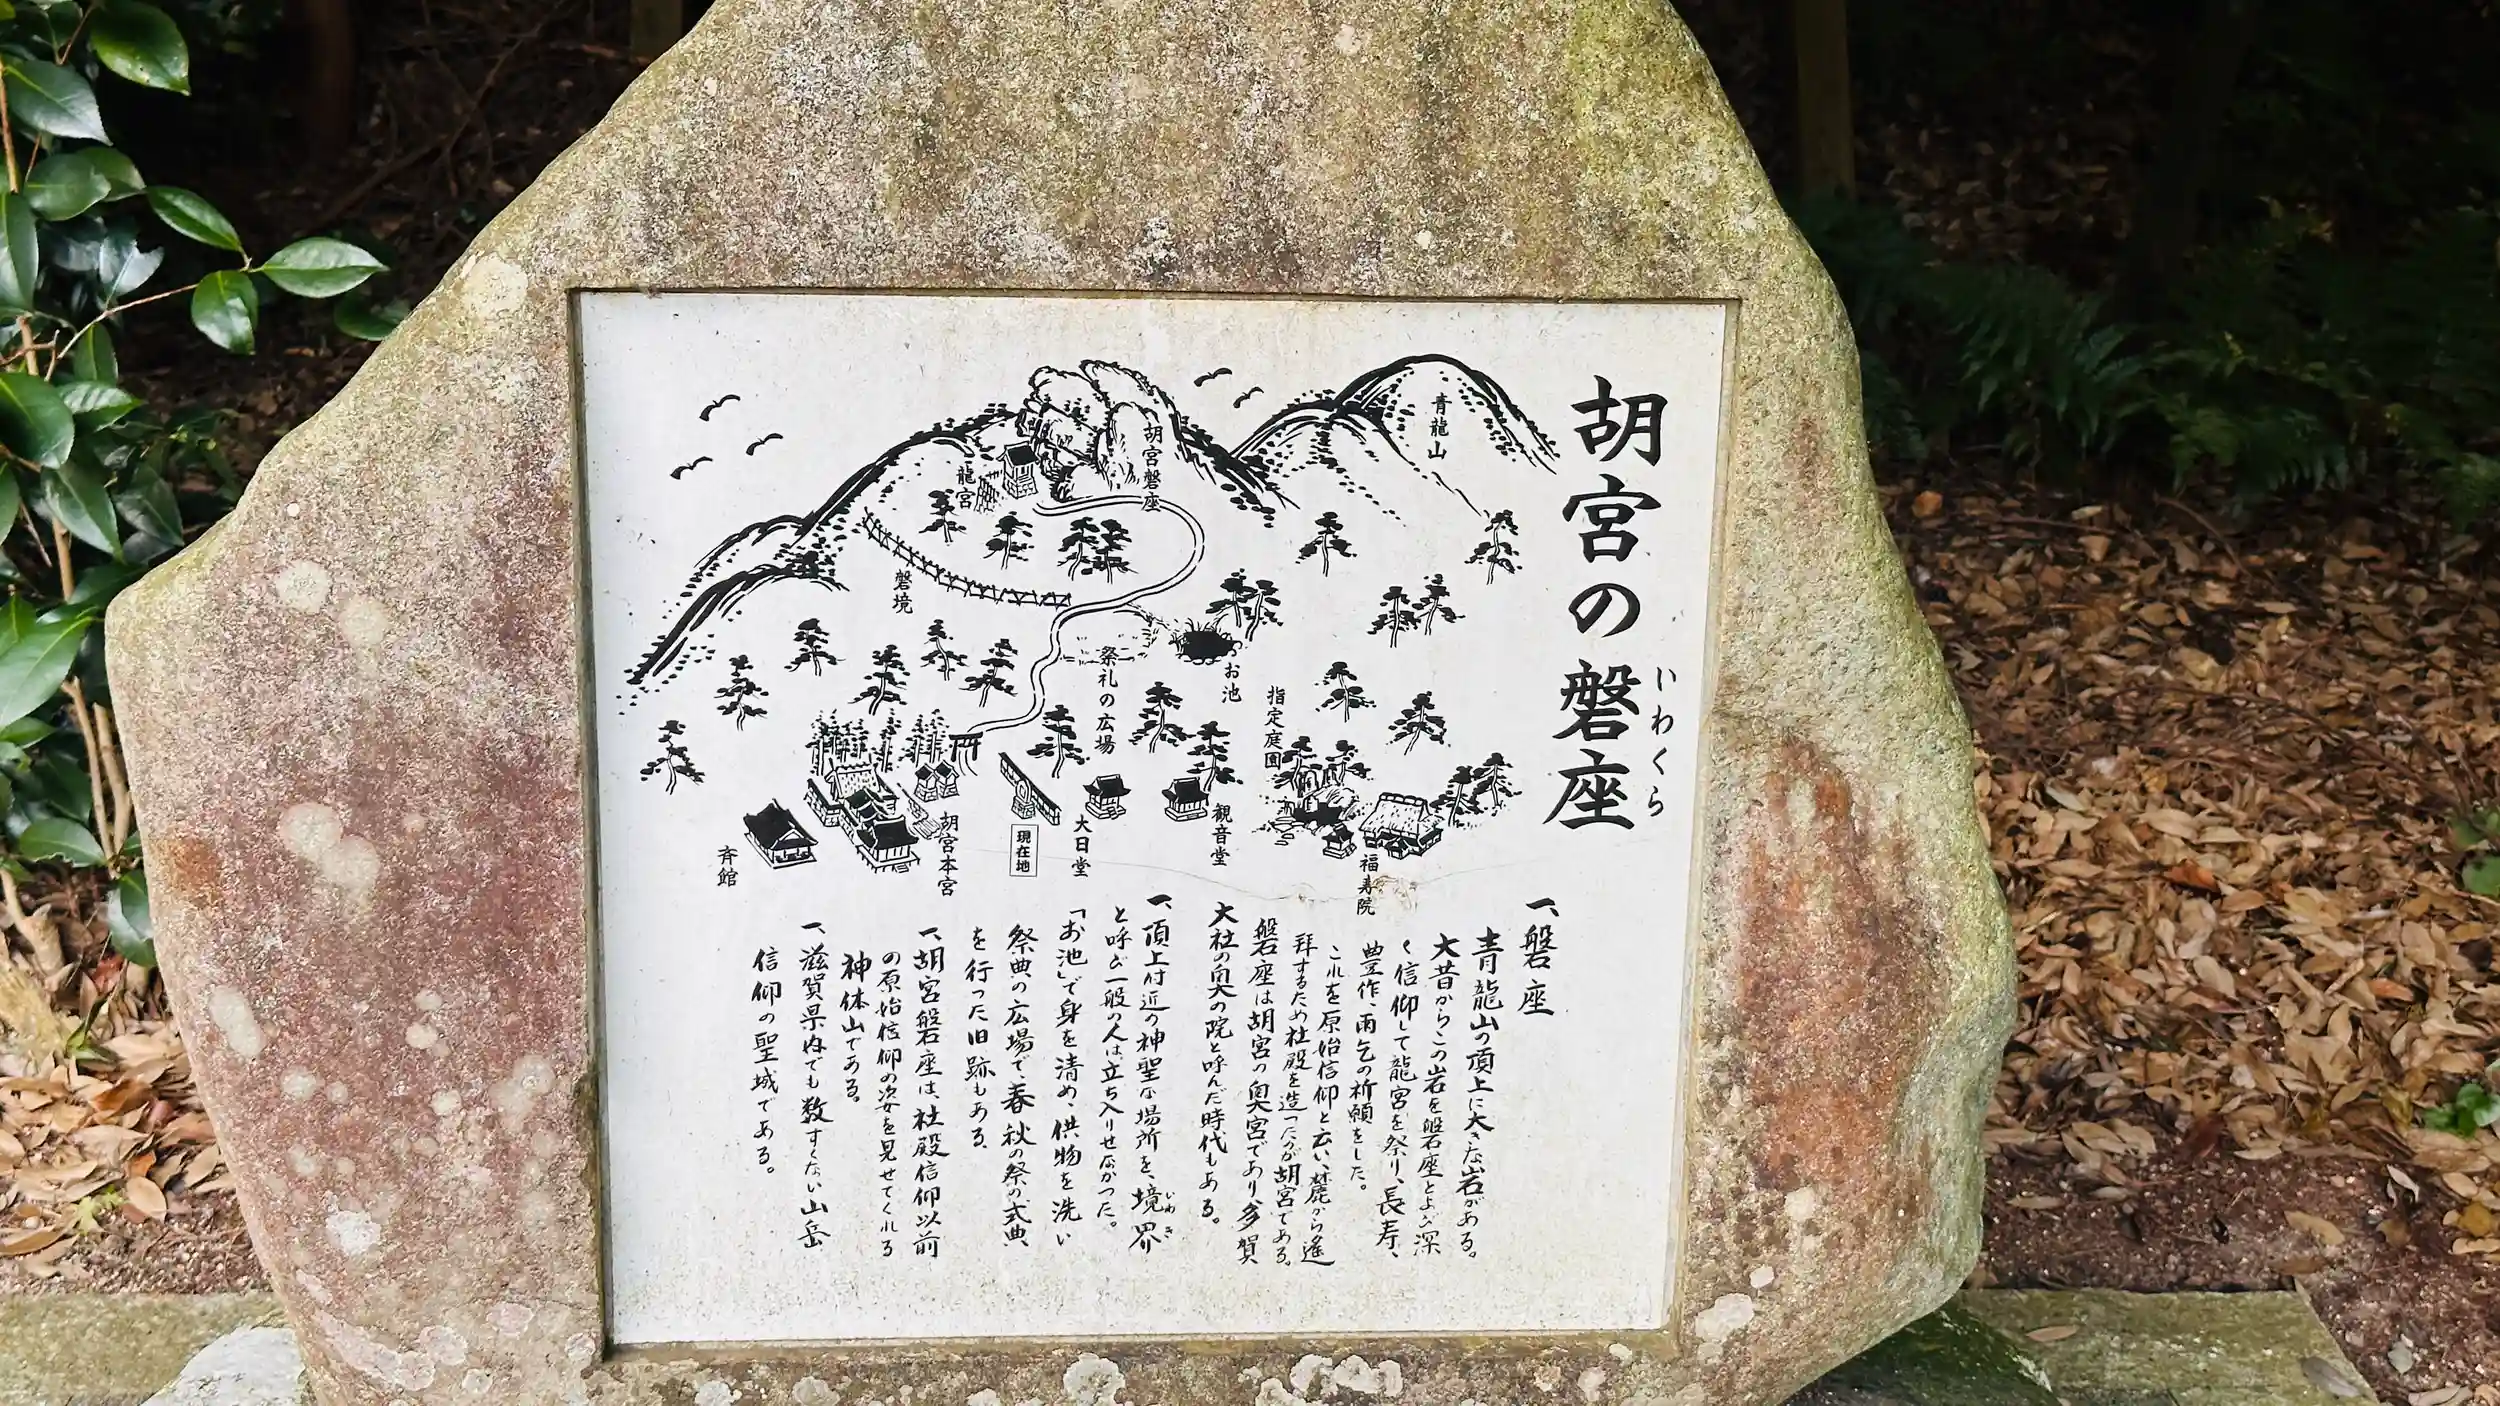 胡宮の磐座
いわくら
青龍山
胡宮磐座
龍宮
磐境
お池
祭礼の広場
指定庭園
福寿院
観音堂
大日堂
現在地
胡宮本宮
斉館
一、磐座
青龍山の頂上に大きな岩がある。
大昔からこの岩を磐座とよび深
く信仰して龍宮を祭り、長寿、
豊作、雨乞の祈願をした。
これを原始信仰と云い、麓から遙
拝するため社殿を造ったのが胡宮である。
磐座は胡宮の奥宮であり、多賀
大社の奥の院と呼んだ時代もある。
一、頂上付近の神聖な場所を、境界
いわさき
と呼び一般の人は立ち入りせなかった。
「お池」で身を清め、供物を洗い
祭典の広場で、春秋の祭の式典、
を行った旧跡もある。
一、胡宮磐座は、社殿信仰以前
の原始信仰の姿を見せてくれる
神体山である。
一、滋賀県内でも数すくない山岳
信仰の聖域である。